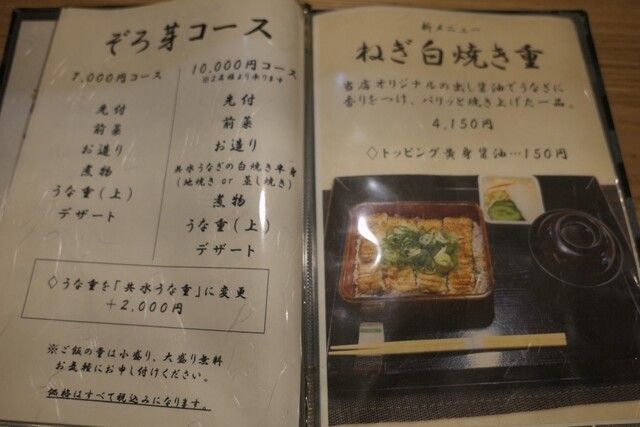 ぞろ芽コース
7,000円コース
先付
前菜
お造り
煮物
うな重(上)
デザート
10,000円コース
※2名様より承ります
先付
前菜
お造り
共水うなぎの白焼き半身
(地焼き or 蒸し焼き)
煮物
うな重(上)
デザート
◇うな重を「共水うな重」に変更
+2,000円
※ご飯の量は小盛り、大盛り無料
お気軽にお申し付けください。
価格はすべて税込みになります。
新メニュー
ねぎ白焼き重
当店オリジナルの出し醤油でうなぎに
香りをつけ、パリッと焼き上げた一品。
4,150円
◇トッピング黄身醤油…150円